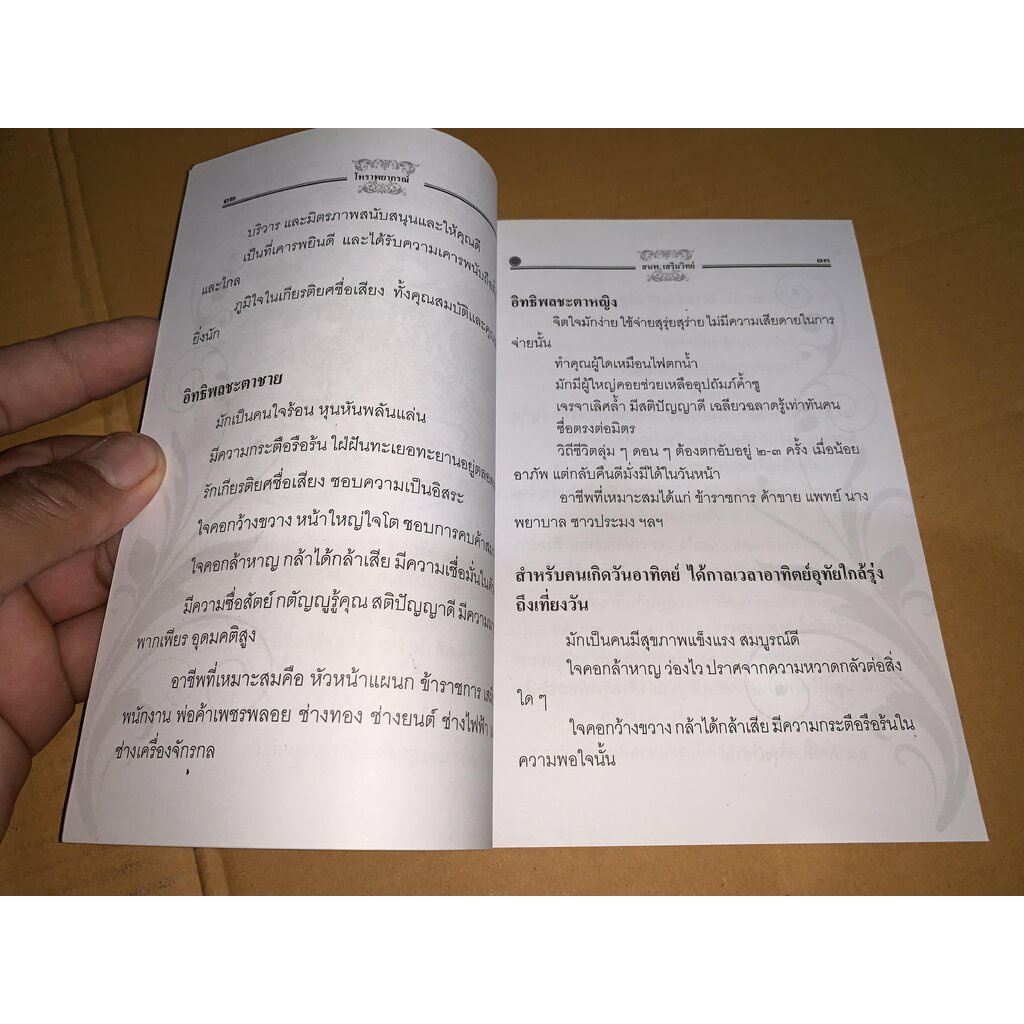 ๑๒
โหราพยากรณ์
บริวาร และมิตรภาพสนับสนุนและให้คุณดี
เป็นที่เคารพยินดี และได้รับความเคารพนับถือ
และไกล
ภูมิใจในเกียรติยศชื่อเสียง ทั้งคุณสมบัติและ
ยิ่งนัก
อิทธิพลชะตาชาย
มักเป็นคนใจร้อน หุนหันพลันแล่น
มีความกระตือรือร้น ใฝ่ฝันทะเยอทะยานอยู่ตลอด
รักเกียรติยศชื่อเสียง ชอบความเป็นอิสระ
ใจคอกว้างขวาง หน้าใหญ่ใจโต ชอบการคบค้า
ใจคอกล้าหาญ กล้าได้กล้าเสีย มีความเชื่อมั่นใน
มีความซื่อสัตย์ กตัญญูรู้คุณ สติปัญญาดี มีความ
พากเพียร อุดมคติสูง
อาชีพที่เหมาะสมคือ หัวหน้าแผนก ข้าราชการ
พนักงาน พ่อค้าเพชรพลอย ช่างทอง ช่างยนต์ ช่างไฟฟ้า
ช่างเครื่องจักรกล
สนพ. เสริมวิทย์
๑๓
อิทธิพลชะตาหญิง
จิตใจมักง่าย ใช้จ่ายสุรุ่ยสุร่าย ไม่มีความเสียดายในการ
จ่ายนั้น
ทำคุณผู้ใดเหมือนไฟตกน้ำ
มักมีผู้ใหญ่คอยช่วยเหลืออุปถัมภ์ค้ำชู
เจรจาเลิศล้ำ มีสติปัญญาดี เฉลียวฉลาดรู้เท่าทันคน
ซื่อตรงต่อมิตร
วิถีชีวิตลุ่ม ๆ ดอน ๆ ต้องตกอับอยู่ ๒-๓ ครั้ง เมื่อน้อย
อาภัพ แต่กลับคืนดีมั่งมีได้ในวันหน้า
อาชีพที่เหมาะสมได้แก่ ข้าราชการ ค้าขาย แพทย์ นาง
พยาบาล ชาวประมง ฯลฯ
สำหรับคนเกิดวันอาทิตย์ ได้กาลเวลาอาทิตย์อุทัยใกล้รุ่ง
ถึงเที่ยงวัน
มักเป็นคนมีสุขภาพแข็งแรง สมบูรณ์ดี
ใจคอกล้าหาญ ว่องไว ปราศจากความหวาดกลัวต่อสิ่ง
ใด ๆ
ใจคอกว้างขวาง กล้าได้กล้าเสีย มีความกระตือรือร้นใน
ความพอใจนั้น